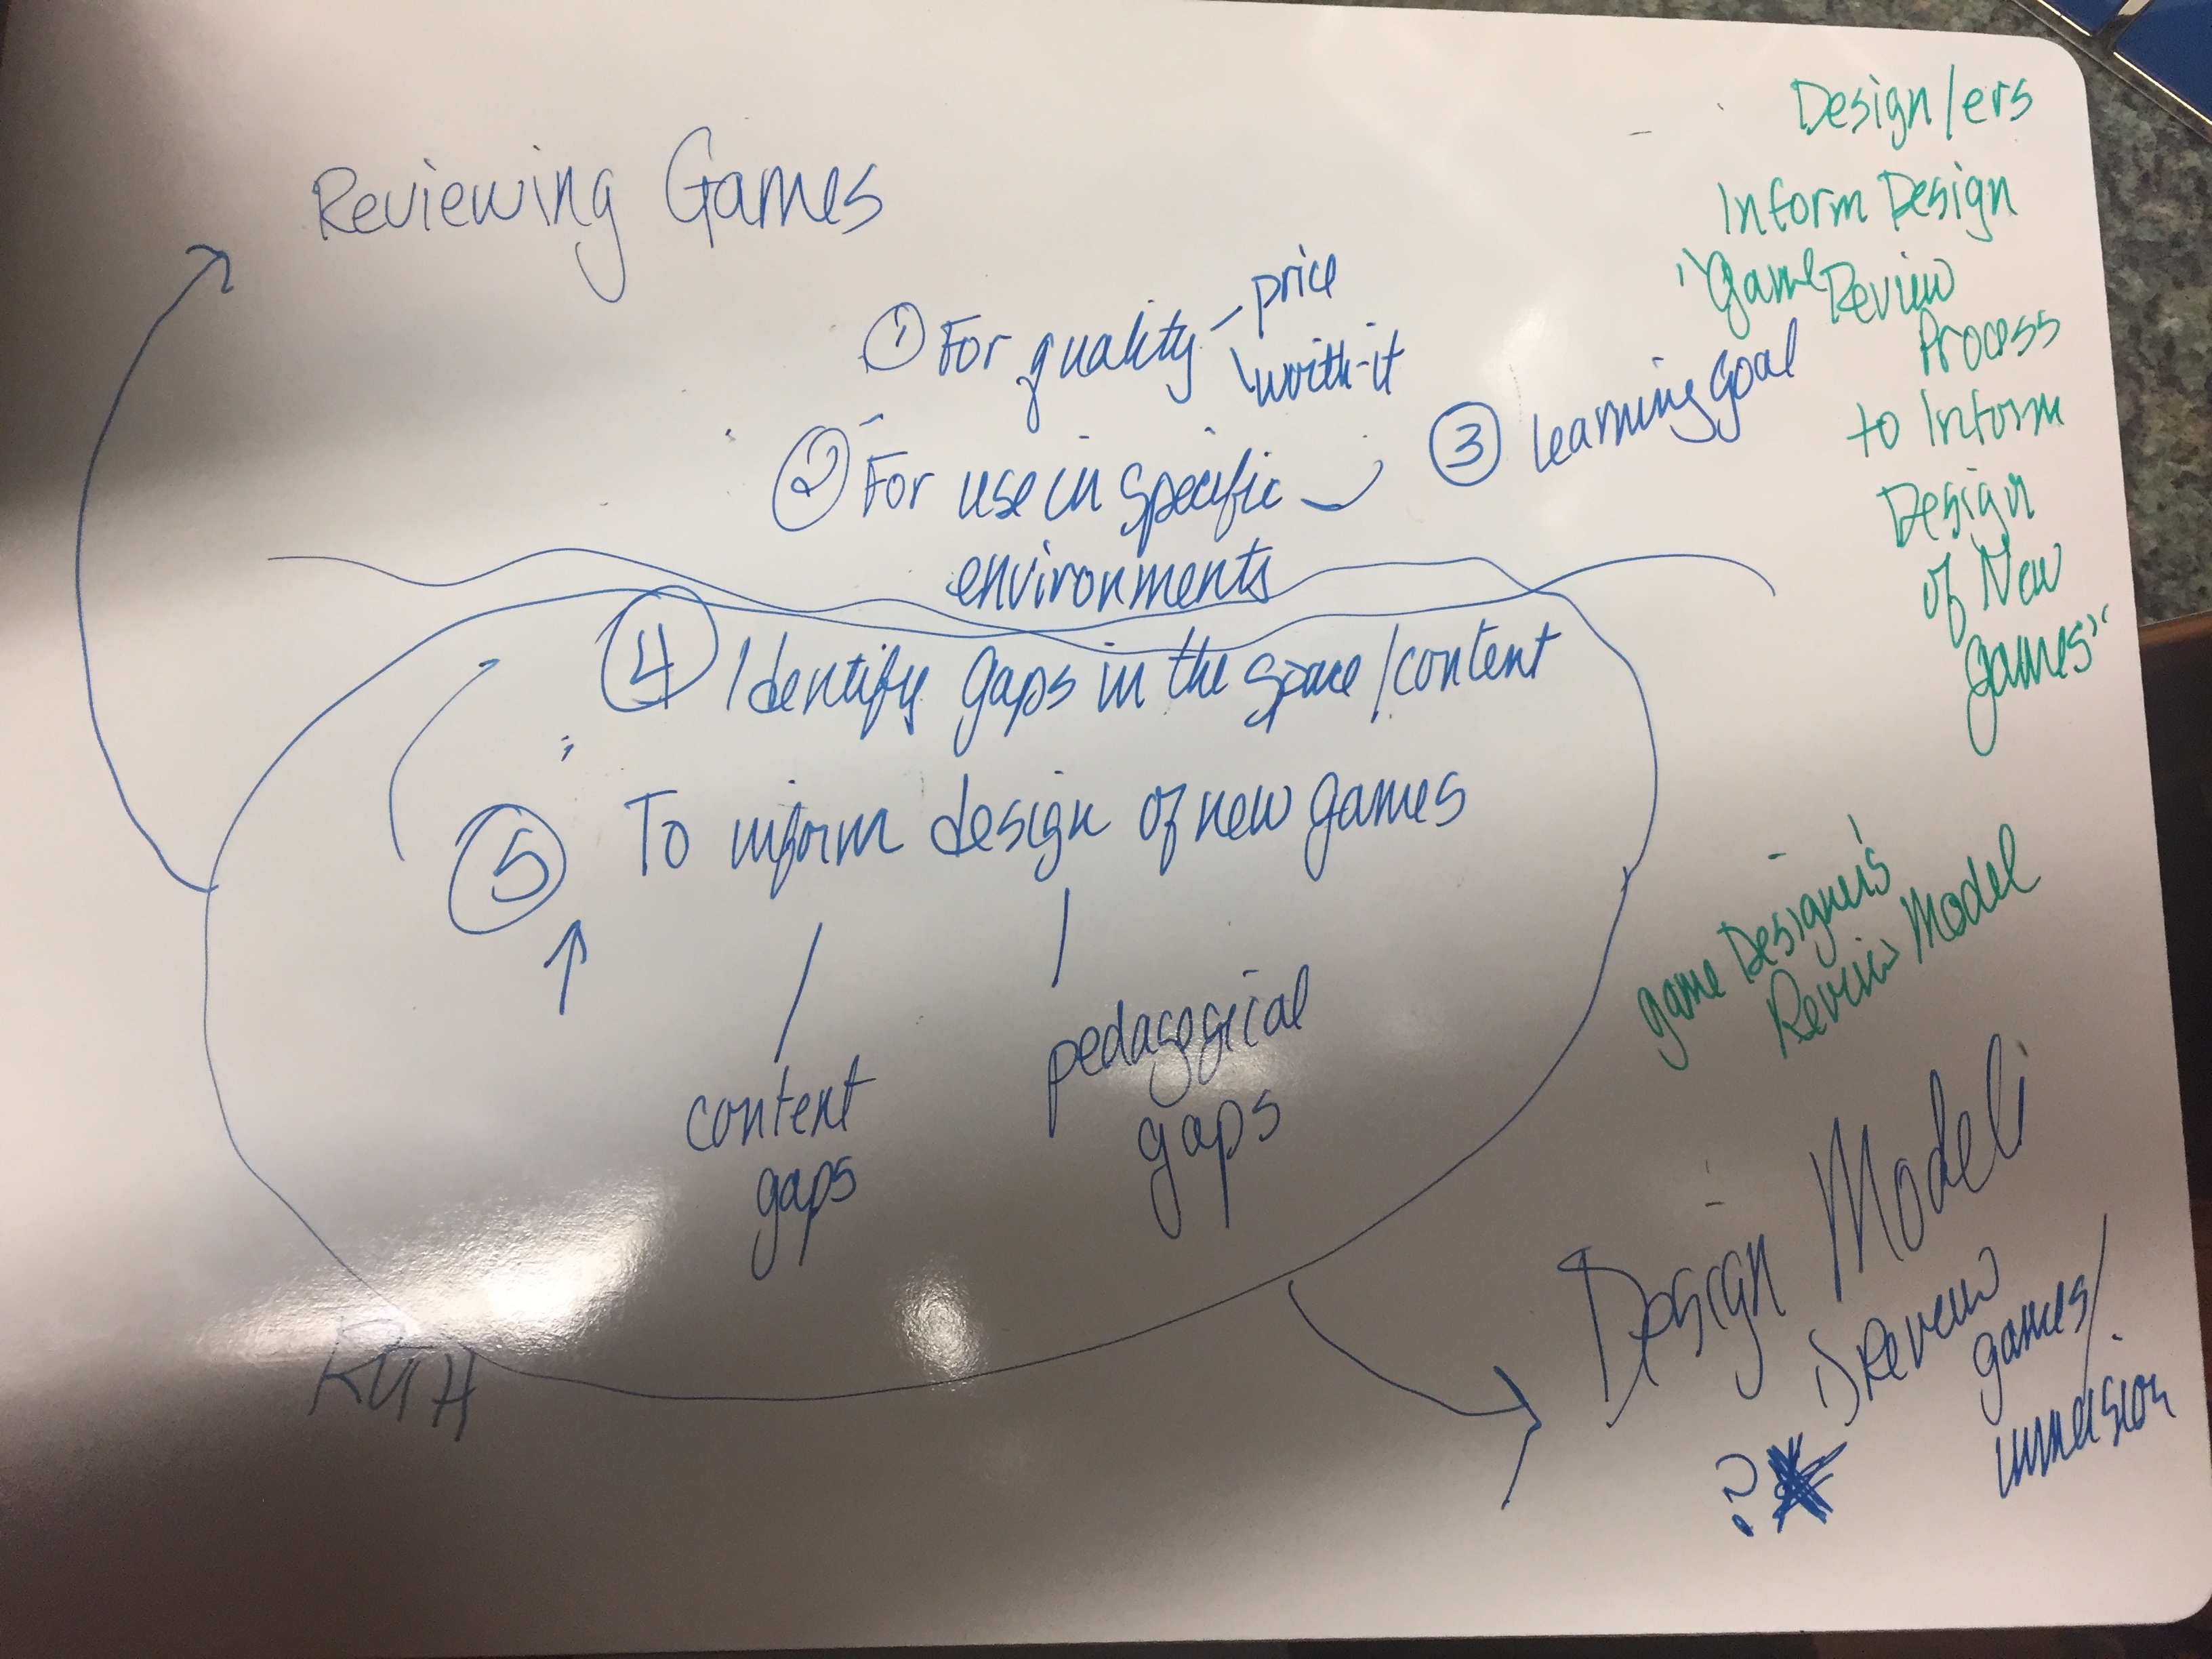 Reviewing Games
① For quality - price
\ worth-it
② For use in specific
environments
③ learning goal
④ Identify gaps in the space/content
⑤ To inform design of new games
content
gaps
pedagogical
gaps
Design/ers
Inform Design
"Game Review
Process
to Inform
Design
of New
games"
game Designer's
Review Model
Design Model
? Review
games/
immersion